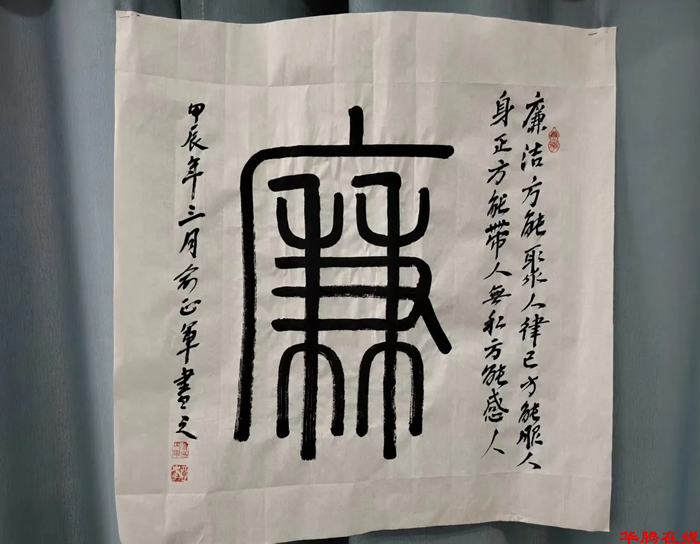 廉洁方能聚众人律己方能服人
身正方能带人無私方能感人
廉
甲辰年三月俞正軍書之
华腾在线